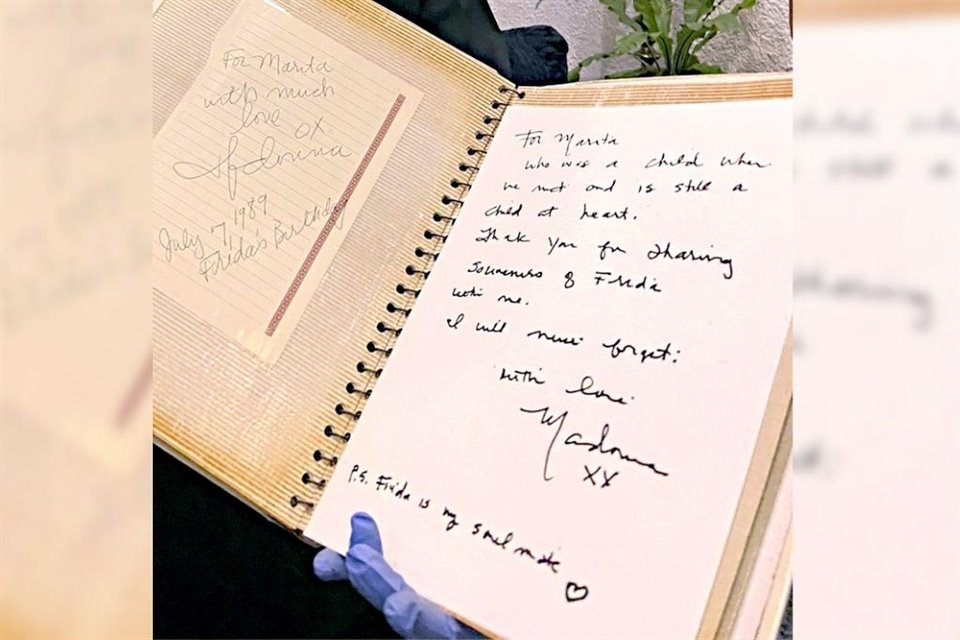 For Marita
with much
love
OX
Madonna
July 7, 1989
Frida's Birthday
For Marita
who was a child when
we met and is still a
child at heart.
Thak you for sharing
souveners of Frida
with me.
I will never forget:
with love
Madonna
XX
P.S. Frida is my soul mate ♡